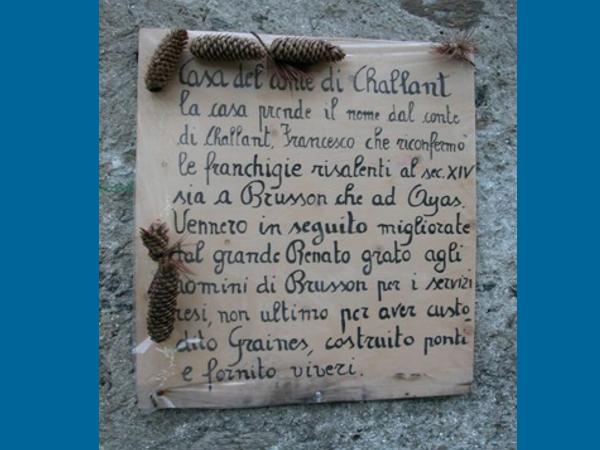 Casa del conte di Challant
la casa prende il nome dal conte
di Challant, Francesco che riconfermò
le franchigie risalenti al sec. XIV
sia a Brusson che ad Ayas.
Vennero in seguito migliorate
dal grande Renato grato agli
uomini di Brusson per i servizi
resi, non ultimo per aver custo_
dito Graines, costruito ponti
e fornito viveri.